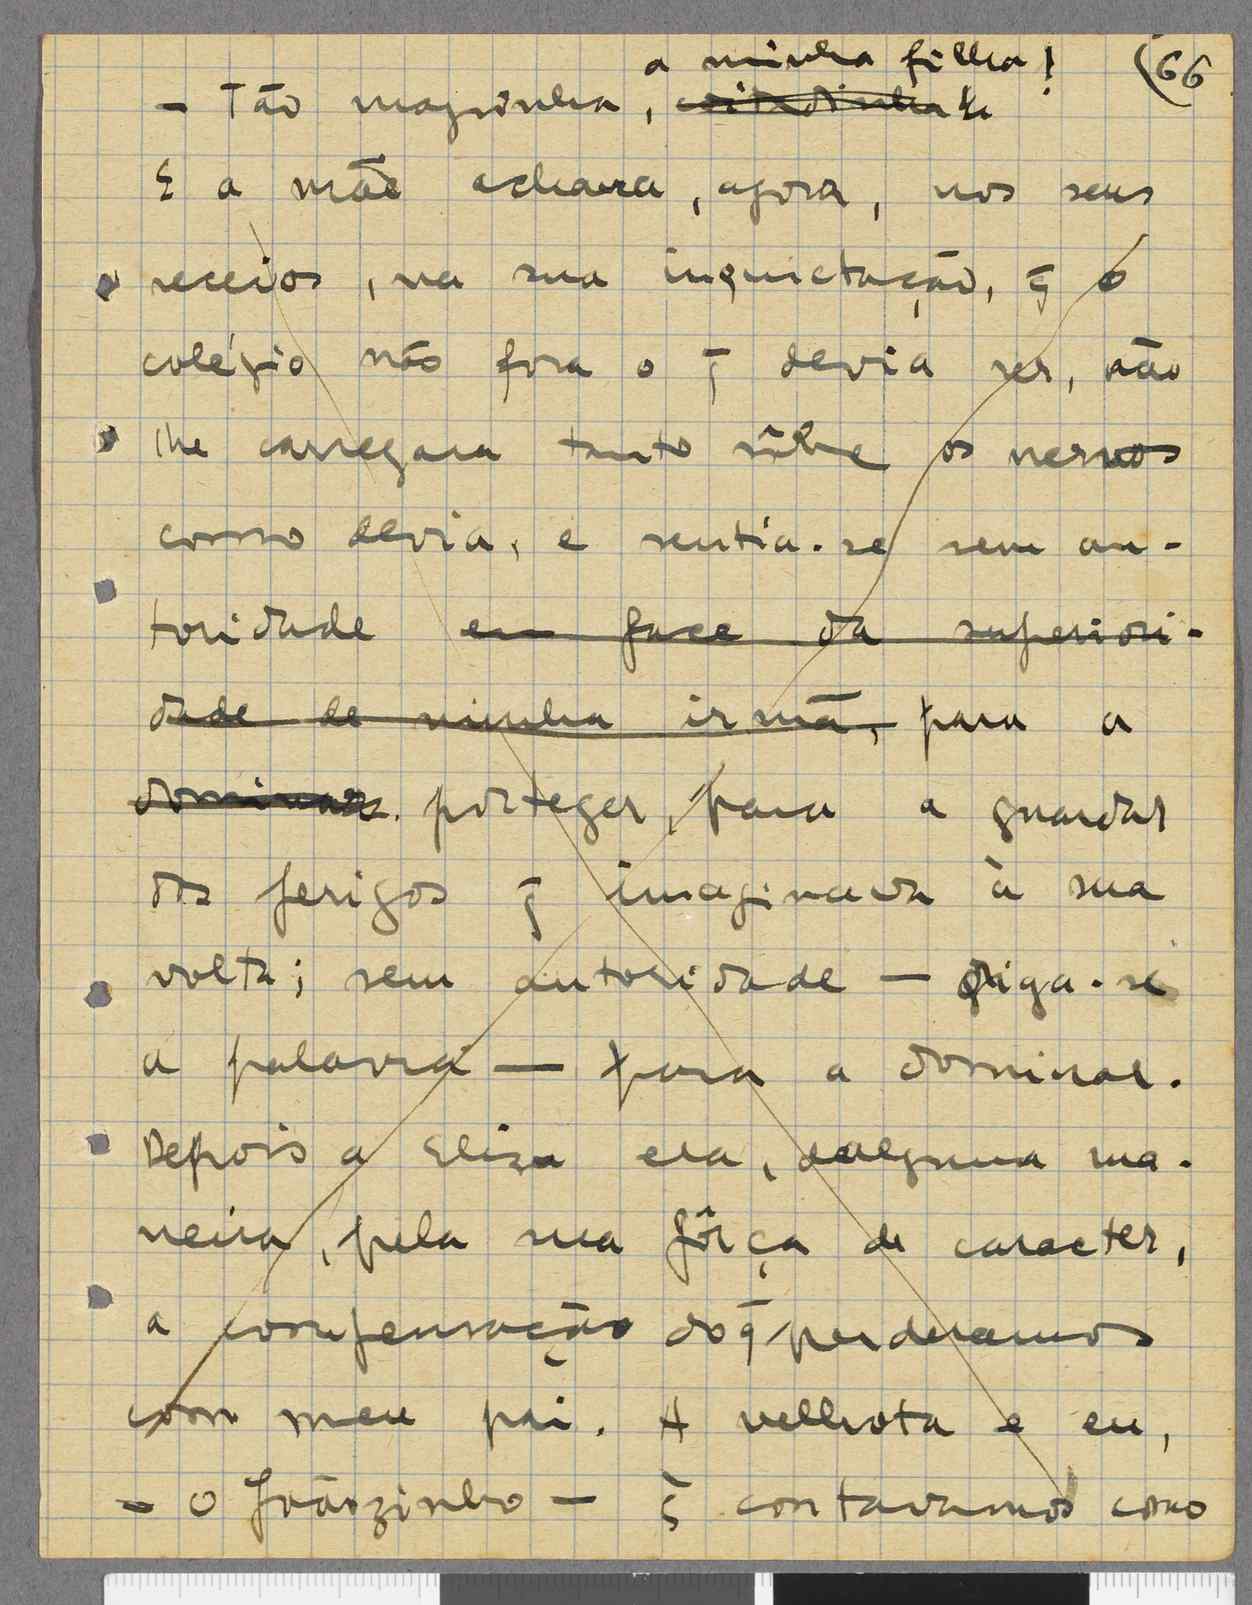 (66
a minha filha!
– Tão magrinha, coitadinha!
E a mãe achava, agora, nos seus
receios, na sua inquietação, q̃ o
colégio não fora o q̃ devia ser, não
lhe carregara tanto sôbre os nervos
como devia, e sentia-se sem au-
toridade em face da superiori-
dade de minha irmã, para a
dominar. proteger, para a guardar
dos perigos q̃ imaginava à sua
volta; sem autoridade — diga-se
a palavra — para a dominar.
Depois a Eliza era, dalguma ma-
neira, pela sua fôrça de caracter,
a compensação do q̃ perderamos
com meu pai. A velhota e eu,
– o Joãozinho – q̃ contavamos como